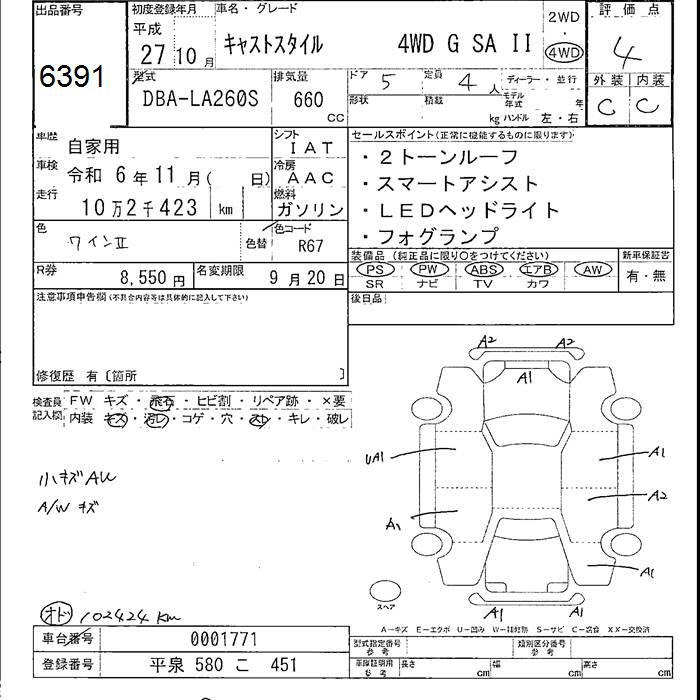 出品番号
6391
初度登録年月
平成
27 10 月
車名・グレード
キャストスタイル 4WD G SA II
2WD
・
4WD
評価点
4
外装 内装
C C
型式
DBA-LA260S
排気量
660
CC
ドア 5
定員 4 人
ディーラー・並行
形状
積載 kg
モデル年式 年
ハンドル 左・右
車歴
自家用
シフト
IAT
車検
令和 6 年 11 月( 日)
冷房
AAC
走行
10 万 2 千 423 km
燃料
ガソリン
色
ワインⅡ
色替
色コード
R67
R券
8,550 円
名変期限
9 月 20 日
セールスポイント(正常に機能するものに限ります)
・2トーンルーフ
・スマートアシスト
・LEDヘッドライト
・フォグランプ
装備品(純正品に限り○をつけてください)
PS PW ABS エアB AW
SR ナビ TV カワ
新車保証書
有・無
後日品
注意事項申告欄(不具合内容等は具体的に記入して下さい)
修復歴 有〔箇所 〕
検査員記入欄
FW キズ・飛石・ヒビ割・リペア跡・×要
内装 キズ・汚レ・コゲ・穴・スレ・キレ・破レ
小キズAW
A/W キズ
オド 102424 km
A2 A2
A1
UA1
A1
A1
A2
A1
A1
A1
スペア
A-キズ E-エクボ U-凹み W-補修跡 S-サビ C-腐食 XX-交換済
車台番号 0001771
登録番号 平泉 580 こ 451
型式指定番号
参考
類別区分番号
参考
車庫証明用
参考
長さ cm 幅 cm 高さ cm